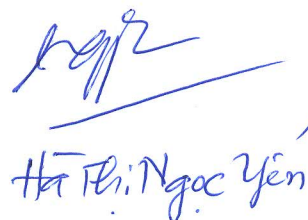 Hà Thị Ngọc Yến